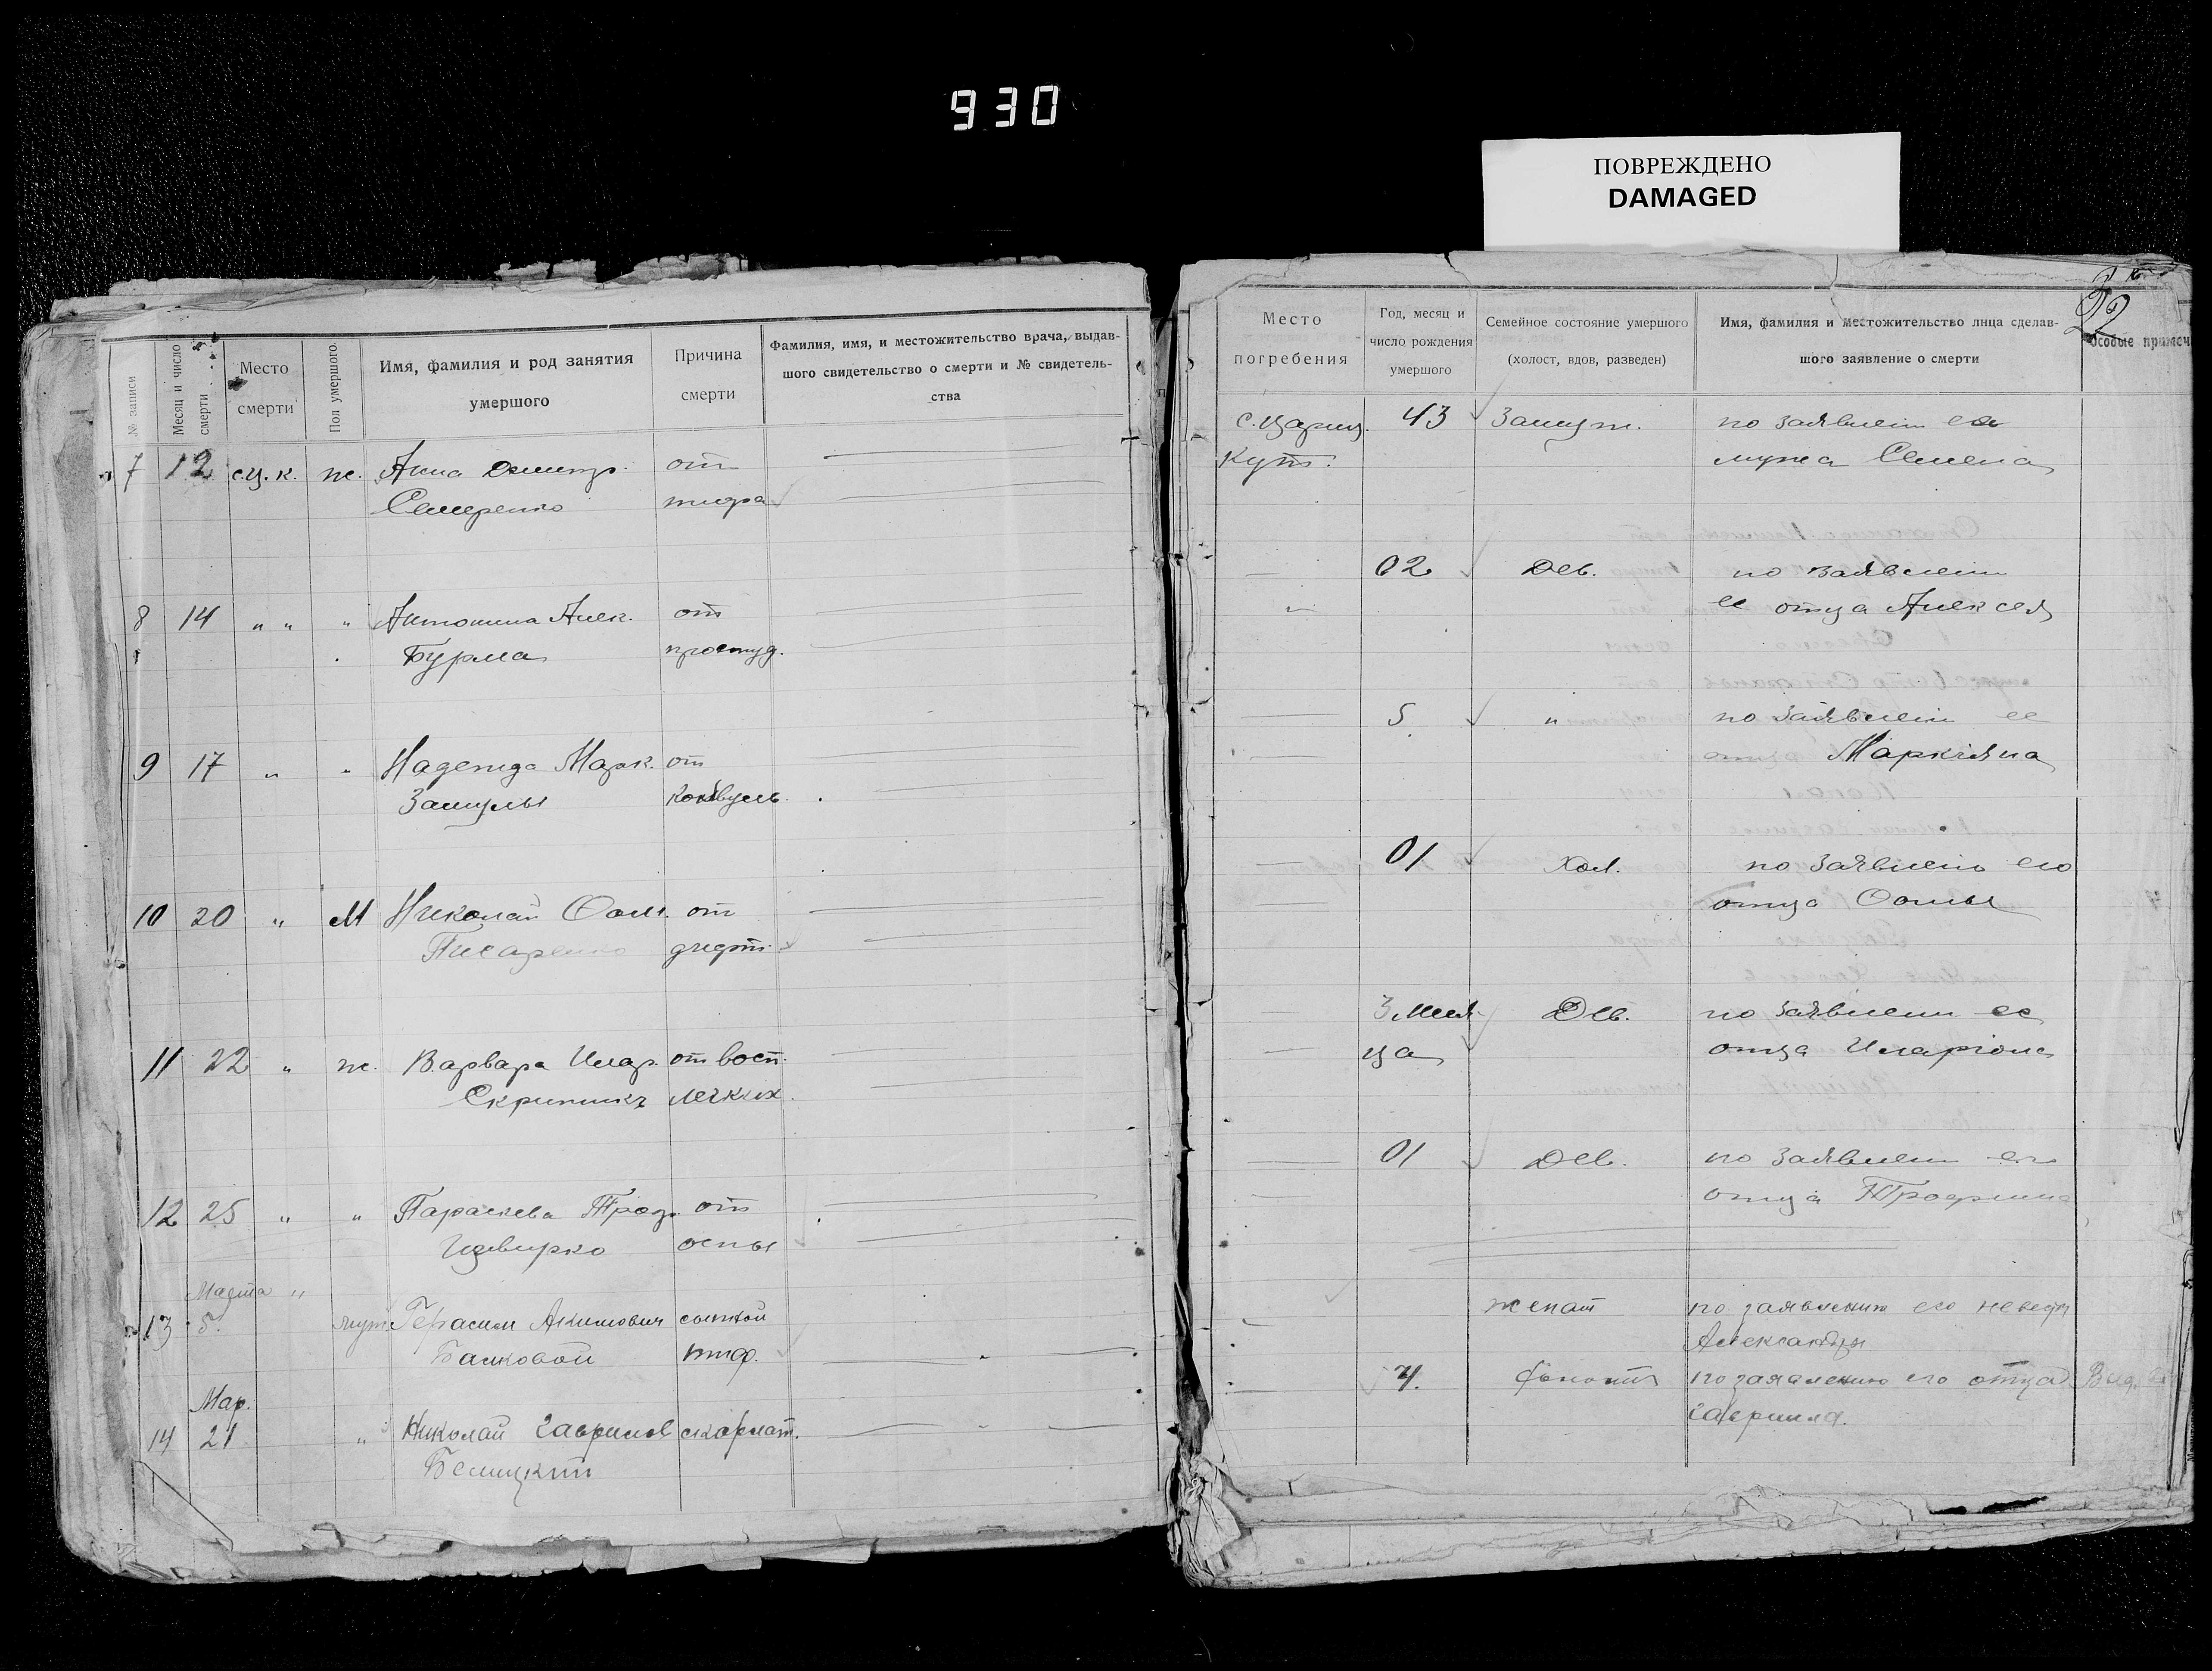 930
ПОВРЕЖДЕНО
DAMAGED
№ записи
Месяц и число смерти
Место смерти
Пол умершого.
Имя, фамилия и род занятия умершого
Причина смерти
Фамилия, имя, и местожительство врача, выдав-
шого свидетельство о смерти и № свидетель-
ства
7 12 с.ц.к. ж. Анна Дмитр. от
Семеренко тифа
8 14 " " " Антонина Алек. от
Бурма простуд.
9 17 " " Надежда Марк. от
Зашулы конвуль.
10 20 " М Николай Фом. от
Писаренко дифт.
11 22 " ж. Варвара Илар. от восп.
Скрипникъ легких.
12 25 " " Параскева Троф. от
оспы
Марта "
13 5. муж Герасим Акимович сыпной
Балковой тиф.
Мар.
14 21 " Николай Гаврилов скарлат.
Белицкий
Место
погребения
Год, месяц и
число рождения
умершого
Семейное состояние умершого
(холост, вдов, разведен)
Имя, фамилия и местожительство лица сделав-
шого заявление о смерти
Особые примеч
с. Цариц. 43 Замуж. по заявлени ея
Кут. мужа Семена
02 Дев. по заявлени
" ее отца Алексея
5 " по заявлени ее
отца Маркіяна
01 Хол. по заявлени его
отца Фомы
3 меся Дев. по заявлени ее
ца отца Иларіона
01 Дев. по заявлени его
отца Трофима
женат по заявлению его
Александры
4. по заявлению его отца
Гавриила.